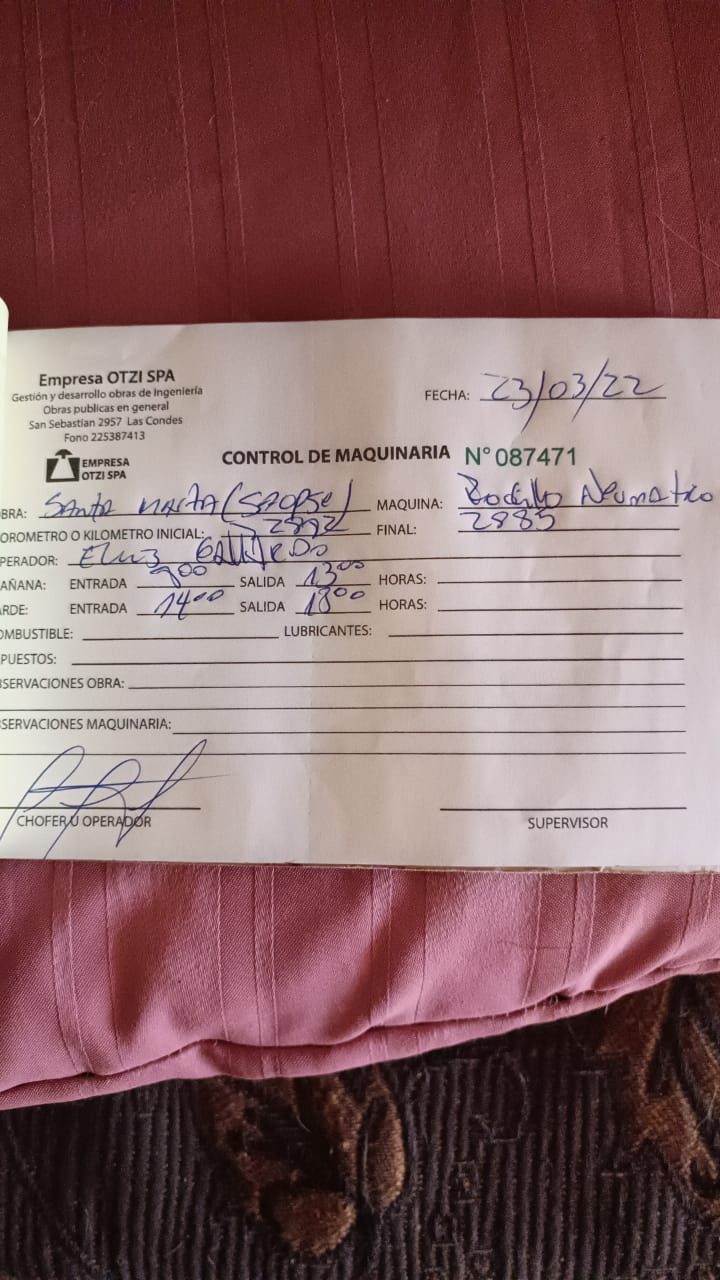 Empresa OTZI SPA
Gestión y desarrollo obras de Ingeniería
Obras publicas en general
San Sebastian 2957 Las Condes
Fono 225387413
EMPRESA
OTZI SPA
FECHA: 23/03/22
CONTROL DE MAQUINARIA N° 087471
BRA: Santa Marta ( MAQUINA: Rodillo Neumatico
OROMETRO O KILOMETRO INICIAL: FINAL: 2885
PERADOR: GALLARDO
AÑANA: ENTRADA 900 SALIDA 1300 HORAS:
RDE: ENTRADA 1400 SALIDA 1800 HORAS:
OMBUSTIBLE: LUBRICANTES:
PUESTOS:
SERVACIONES OBRA:
SERVACIONES MAQUINARIA:
CHOFER U OPERADOR SUPERVISOR